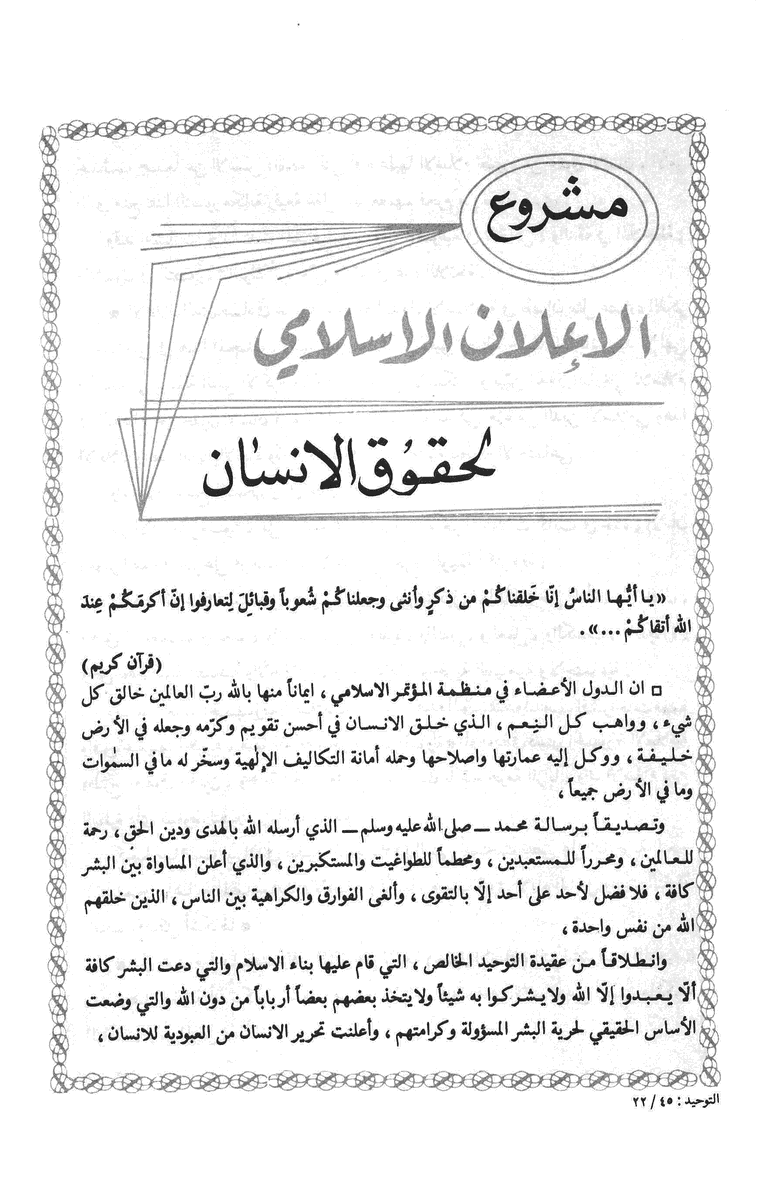 مشروع
الإعلان الاسلامي
لحقوق الانسان
«يا أيُّها الناسُ إنّا خَلقناكُمْ من ذكرٍ وأنثى وجعلناكُمْ شُعوباً وقبائلَ لِتعارفوا إنّ أكرمَكُمْ عِندَ
الله أتقاكُمْ ...» .
(قرآن كريم)
□ ان الدول الأعضاء في منظمة المؤتمر الاسلامي ، ايماناً منها بالله ربّ العالمين خالق كل
شيء ، وواهب كل النِعم ، الذي خلق الانسان في أحسن تقويم وكرّمه وجعله في الأرض
خليفة ، ووكل إليه عمارتها واصلاحها وحمله أمانة التكاليف الإلهية وسخّر له ما في السمٰوات
وما في الأرض جميعاً ،
وتصديقاً برسالة محمد ــ صلى الله عليه وسلم ــ الذي أرسله الله بالهدى ودين الحق ، رحمة
للعالمين ، ومحرراً للمستعبدين ، ومحطماً للطواغيت والمستكبرين ، والذي أعلن المساواة بين البشر
كافة ، فلا فضل لأحد على أحد إلّا بالتقوى ، وألغى الفوارق والكراهية بين الناس ، الذين خلقهم
الله من نفس واحدة ،
وانطلاقاً من عقيدة التوحيد الخالص ، التي قام عليها بناء الاسلام والتي دعت البشر كافة
ألّا يعبدوا إلّا الله ولا يشركوا به شيئاً ولا يتخذ بعضهم بعضاً أرباباً من دون الله والتي وضعت
الأساس الحقيقي لحرية البشر المسؤولة وكرامتهم ، وأعلنت تحرير الانسان من العبودية للانسان ،
التوحيد : ٤٥ / ٢٢